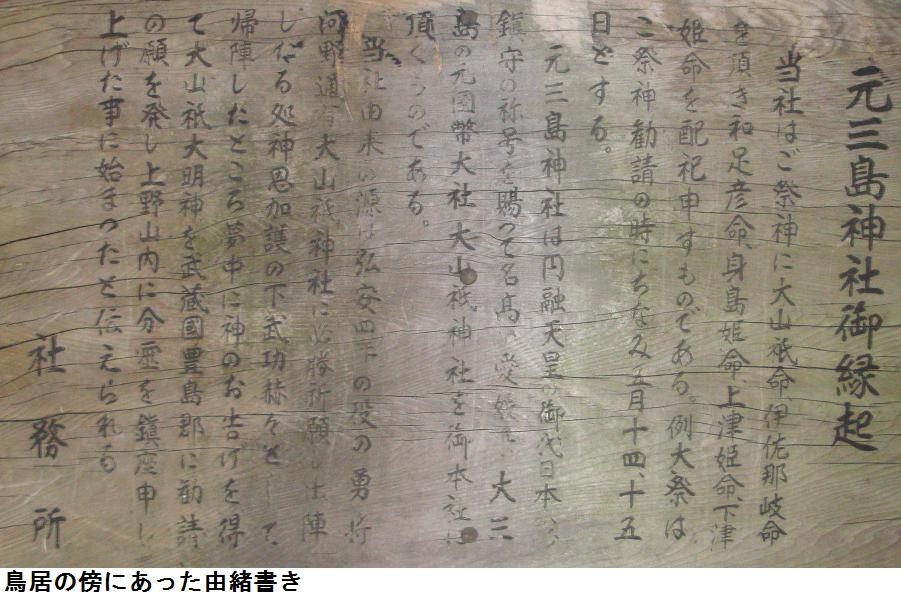 元三島神社御縁起
当社はご祭神に大山祇命、伊佐那岐命
を頂き和足彦命、身島姫命、上津姫命、下津
姫命を配祀申すものである。例大祭は
ご祭神勧請の時にちなみ五月十四、十五
日とする。
元三島神社は円融天皇の御代日本
鎮守の称号を賜って名高い愛媛 大三
島の元國幣大社大山祇神社を御本社に
頂くものである。
当社由来の源は弘安四年の役の勇将
河野通有大山祇神社に必勝祈願し出陣
したる処神恩加護の下武功赫々として
帰陣したところ夢中に神のお告げを得
て大山祇大明神を武蔵國豊島郡に勧請
の願を発し上野山内に分霊を鎮座申し
上げた事に始まったと伝えられる
社務所
鳥居の傍にあった由緒書き